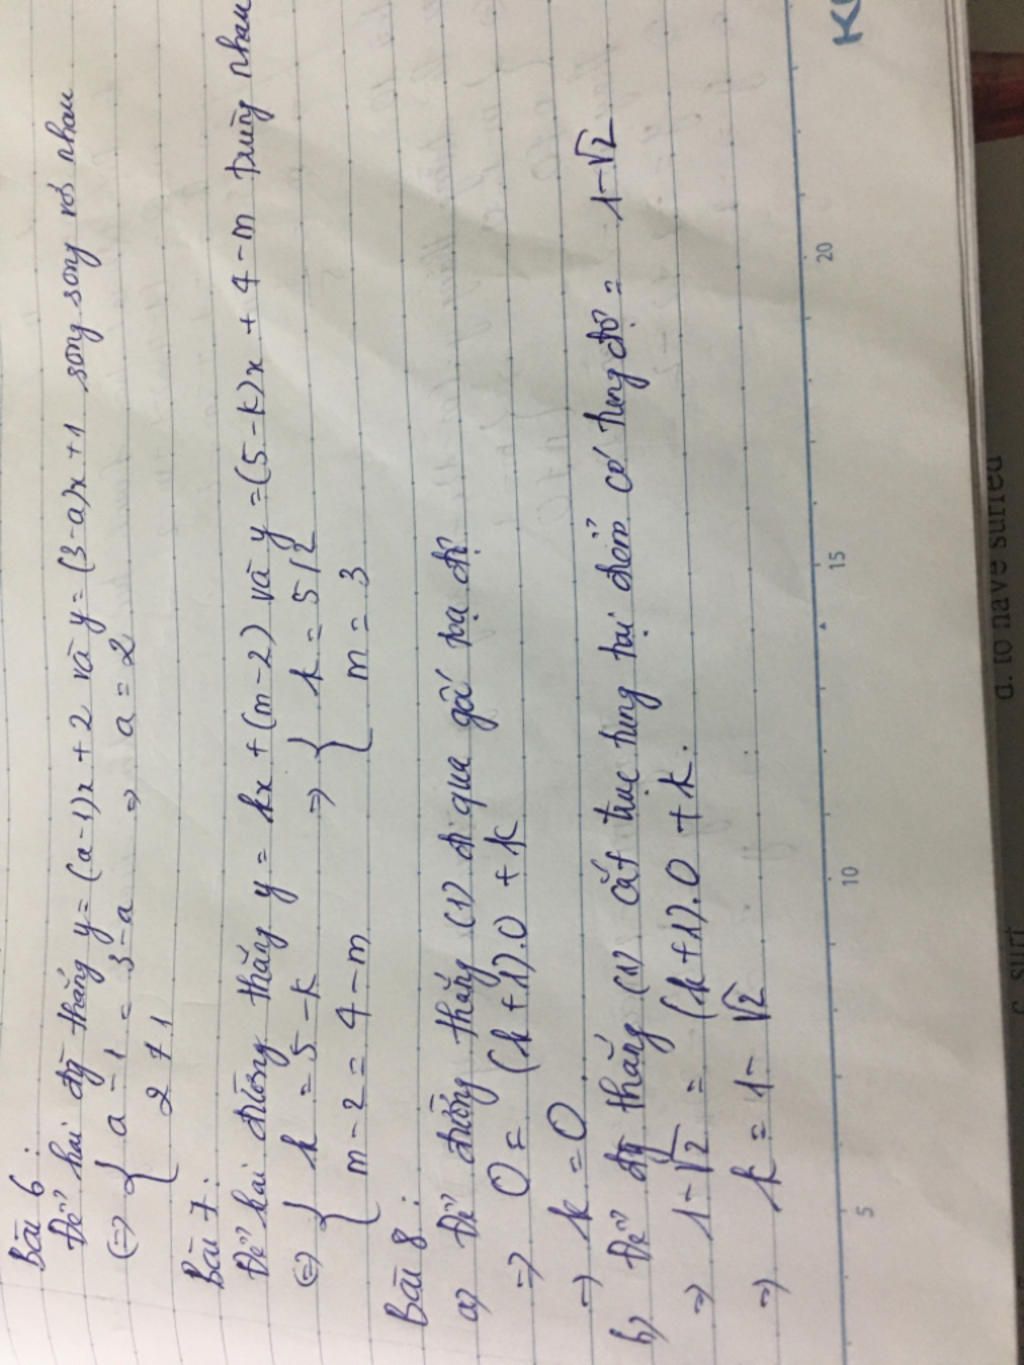 Bài 6:
Để hai đg thẳng y = (a-1)x + 2 và y = (3-a)x + 1 song song với nhau
(=) { a - 1 = 3 - a => a = 2
2 ≠ 1
Bài 7:
Để hai đường thẳng y = kx + (m-2) và y = (5-k)x + 4 - m trùng nhau
(=) { k = 5 - k => { k = 5/2
m - 2 = 4 - m m = 3
Bài 8:
a) Để đường thẳng (1) đi qua gốc tọa độ
=> 0 = (k+1).0 + k
=> k = 0
b) Để đg thẳng (1) cắt trục tung tại điểm có tung độ = 1-√2
=> 1-√2 = (k+1).0 + k.
=> k = 1-√2
5 10 15 20
d. to have surfed
c. surf